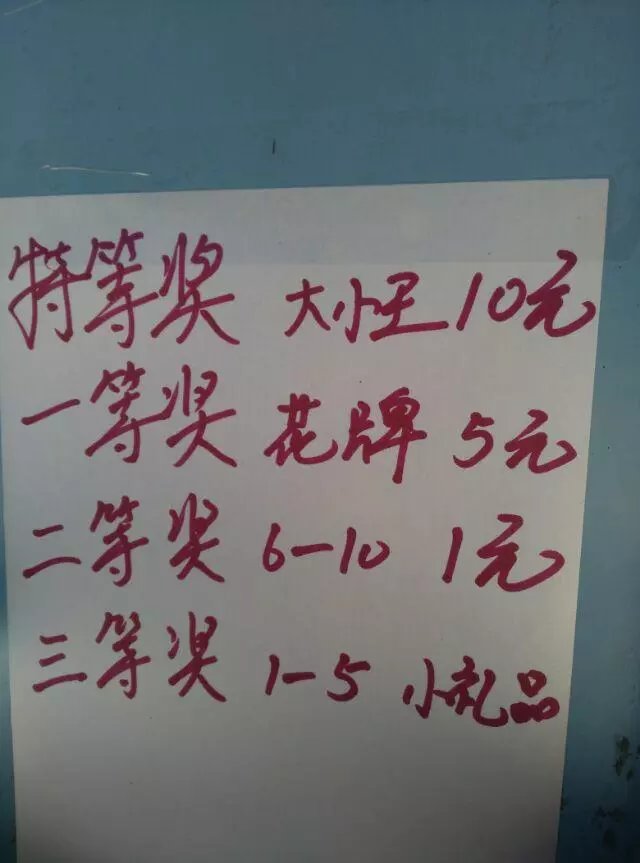 特等奖 大小王 10元
一等奖 花牌 5元
二等奖 6-10 1元
三等奖 1-5 小礼品